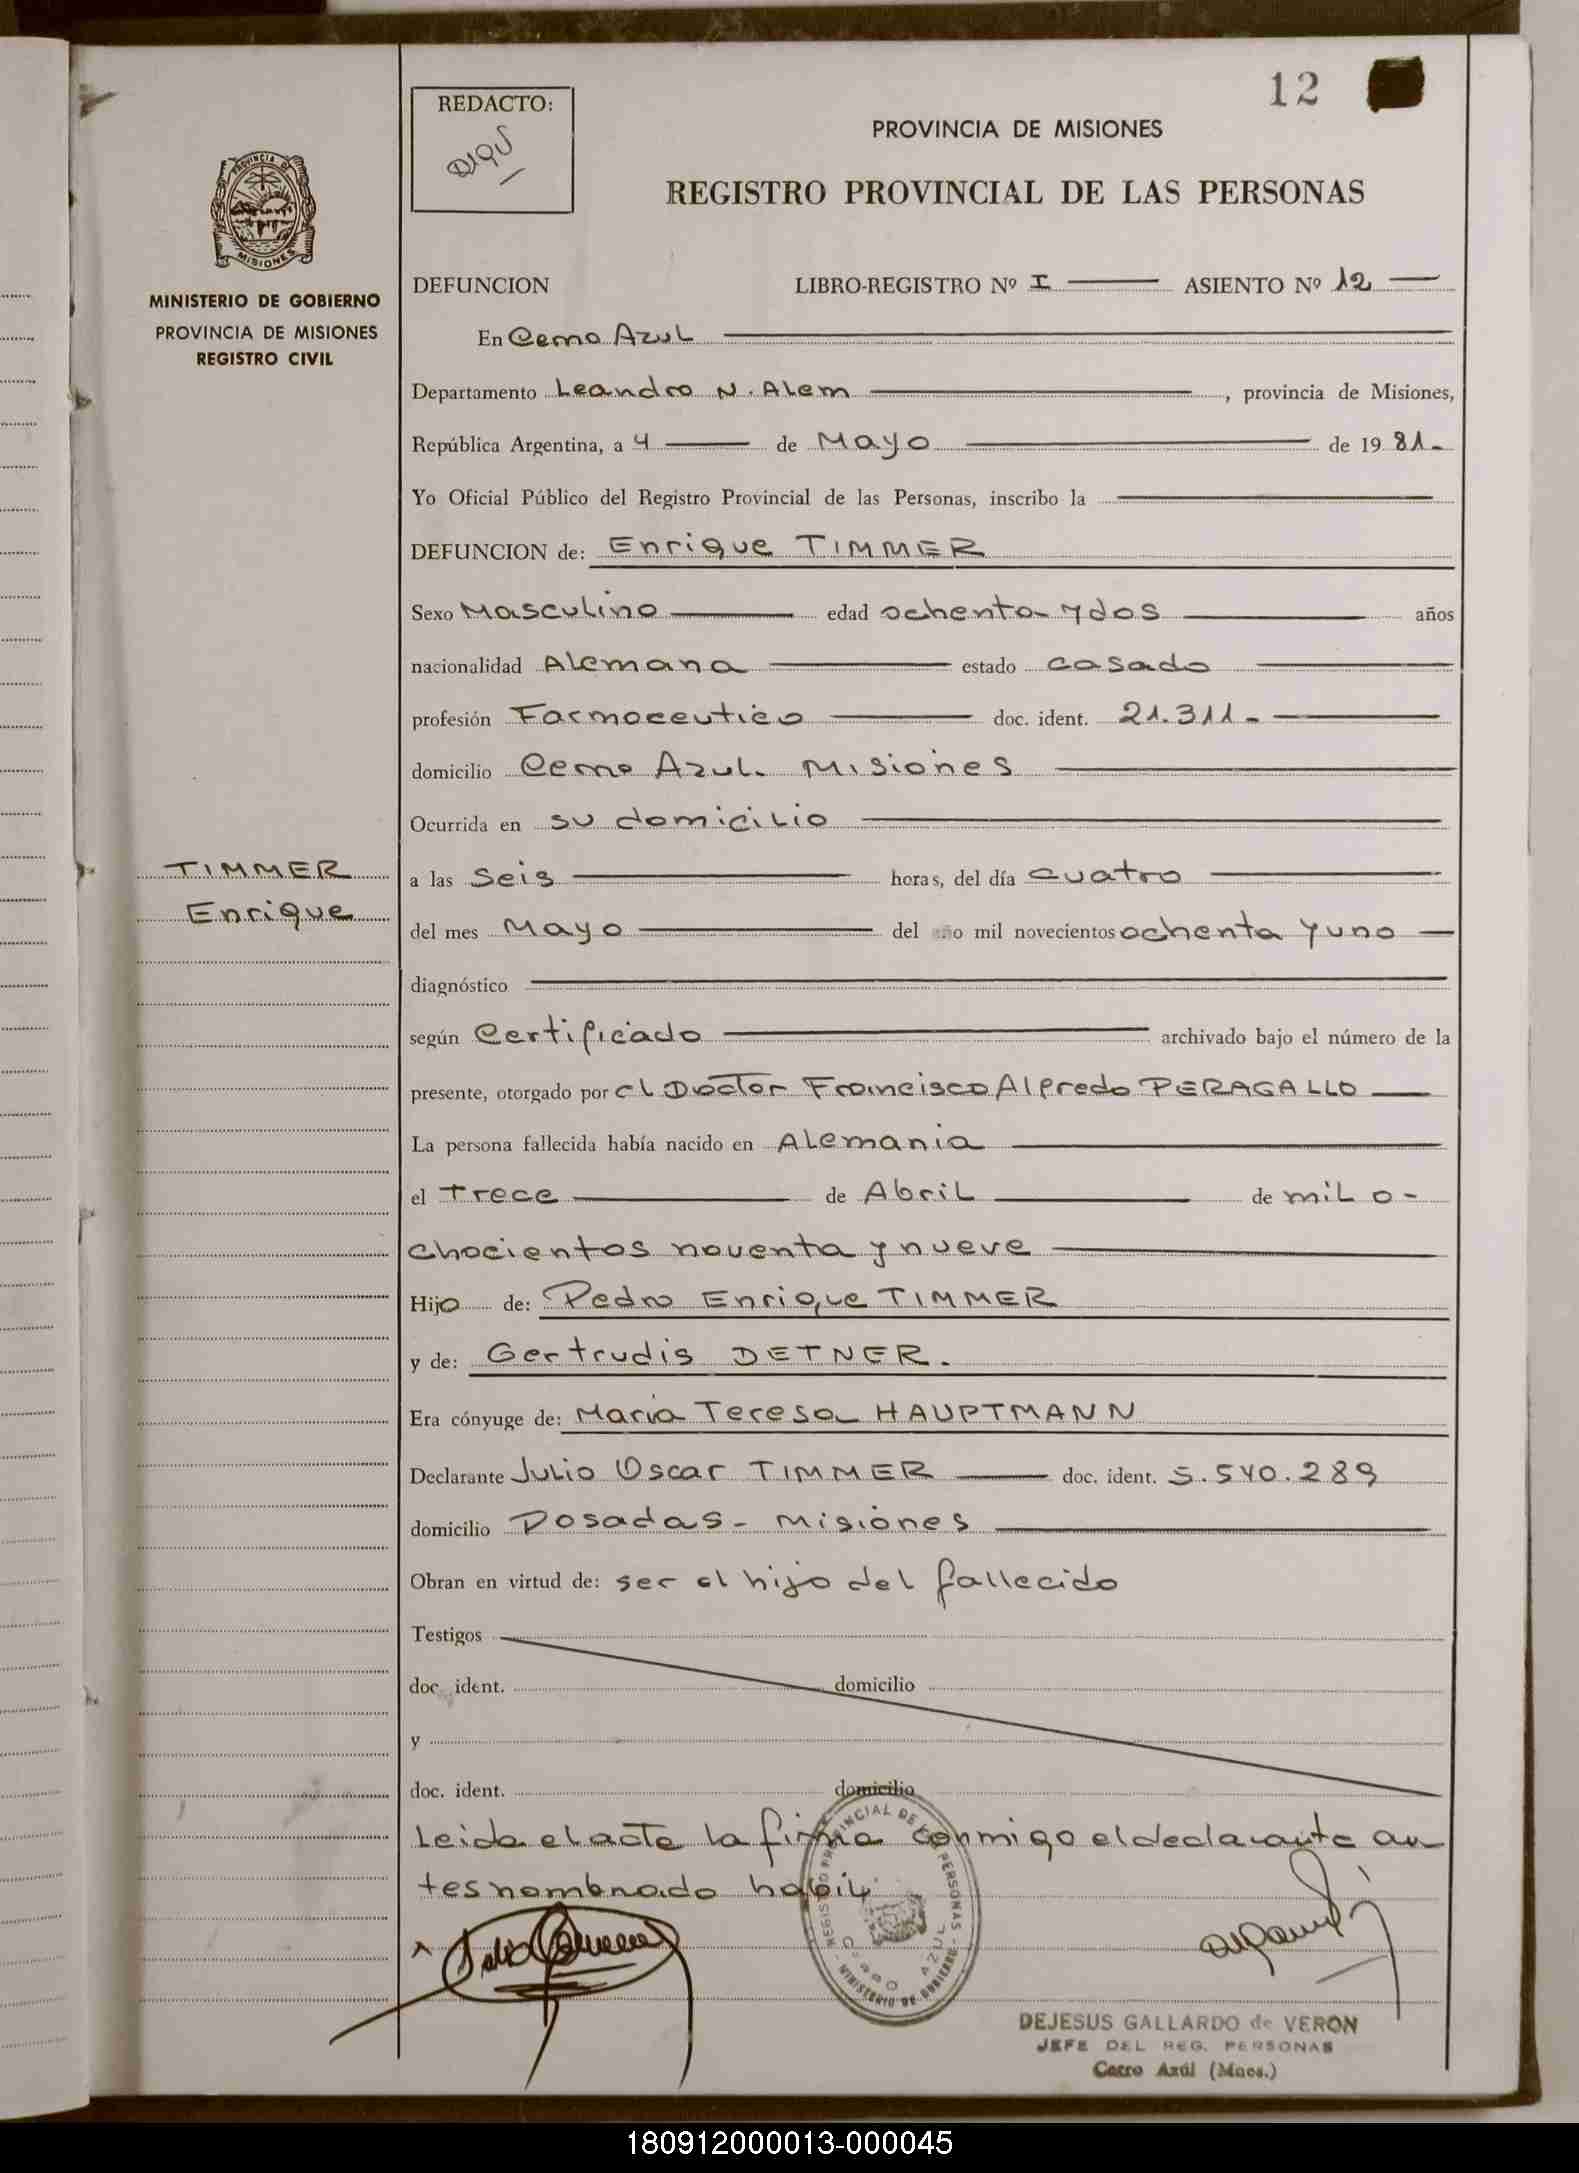 12
REDACTO:
PROVINCIA DE MISIONES
REGISTRO PROVINCIAL DE LAS PERSONAS
PROVINCIA DE
MISIONES
MINISTERIO DE GOBIERNO
PROVINCIA DE MISIONES
REGISTRO CIVIL
DEFUNCION LIBRO-REGISTRO Nº I ASIENTO Nº 12
En Cerro Azul
Departamento Leandro N. Alem, provincia de Misiones,
República Argentina, a 4 de Mayo de 1981-
Yo Oficial Público del Registro Provincial de las Personas, inscribo la
DEFUNCION de: Enrique TIMMER
Sexo Masculino edad ochenta y dos años
nacionalidad Alemana estado casado
profesión Farmaceutico doc. ident. 21.311-
domicilio Cerro Azul. Misiones
Ocurrida en su domicilio
TIMMER
Enrique
a las seis horas, del día cuatro
del mes Mayo del año mil novecientos ochenta y uno
diagnóstico
según Certificado archivado bajo el número de la
presente, otorgado por el Doctor Francisco Alfredo PERAGALLO
La persona fallecida había nacido en Alemania
el trece de Abril de mil o-
chocientos noventa y nueve
Hijo de: Pedro Enrique TIMMER
y de: Gertrudis DETNER.
Era cónyuge de: Maria Teresa HAUPTMANN
Declarante Julio Oscar TIMMER doc. ident. 5.540.289
domicilio Posadas- Misiones
Obran en virtud de: ser el hijo del fallecido
Testigos
doc. ident. domicilio
y
doc. ident. domicilio
Leida el acta la firma conmigo el declarante an
tes nombrado habil.
REGISTRO PROVINCIAL DE LAS PERSONAS
CERRO AZUL
- MINISTERIO DE GOBIERNO -
DEJESUS GALLARDO de VERON
JEFE DEL REG. PERSONAS
Cerro Azúl (Mnes.)
180912000013-000045